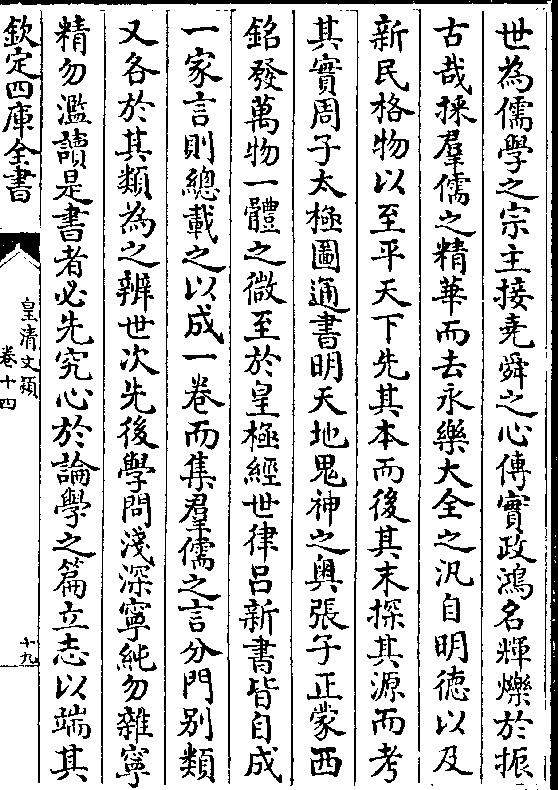 世為儒學之宗主接堯舜之心傳實政鴻名輝爍於振
古哉採羣儒之精華而去永樂大全之汎自明德以及
新民格物以至平天下先其本而後其末探其源而考
其實周子太極圖通書明天地鬼神之奥張子正蒙西
銘發萬物一體之微至於皇極經世律吕新書皆自成
一家言則總載之以成一卷而集羣儒之言分門别類
又各於其類為之辨世次先後學問淺深寧純勿雜寧
精勿濫讀是書者必先究心於論學之篇立志以端其
欽定四庫全書
皇清文穎
卷十四
十九